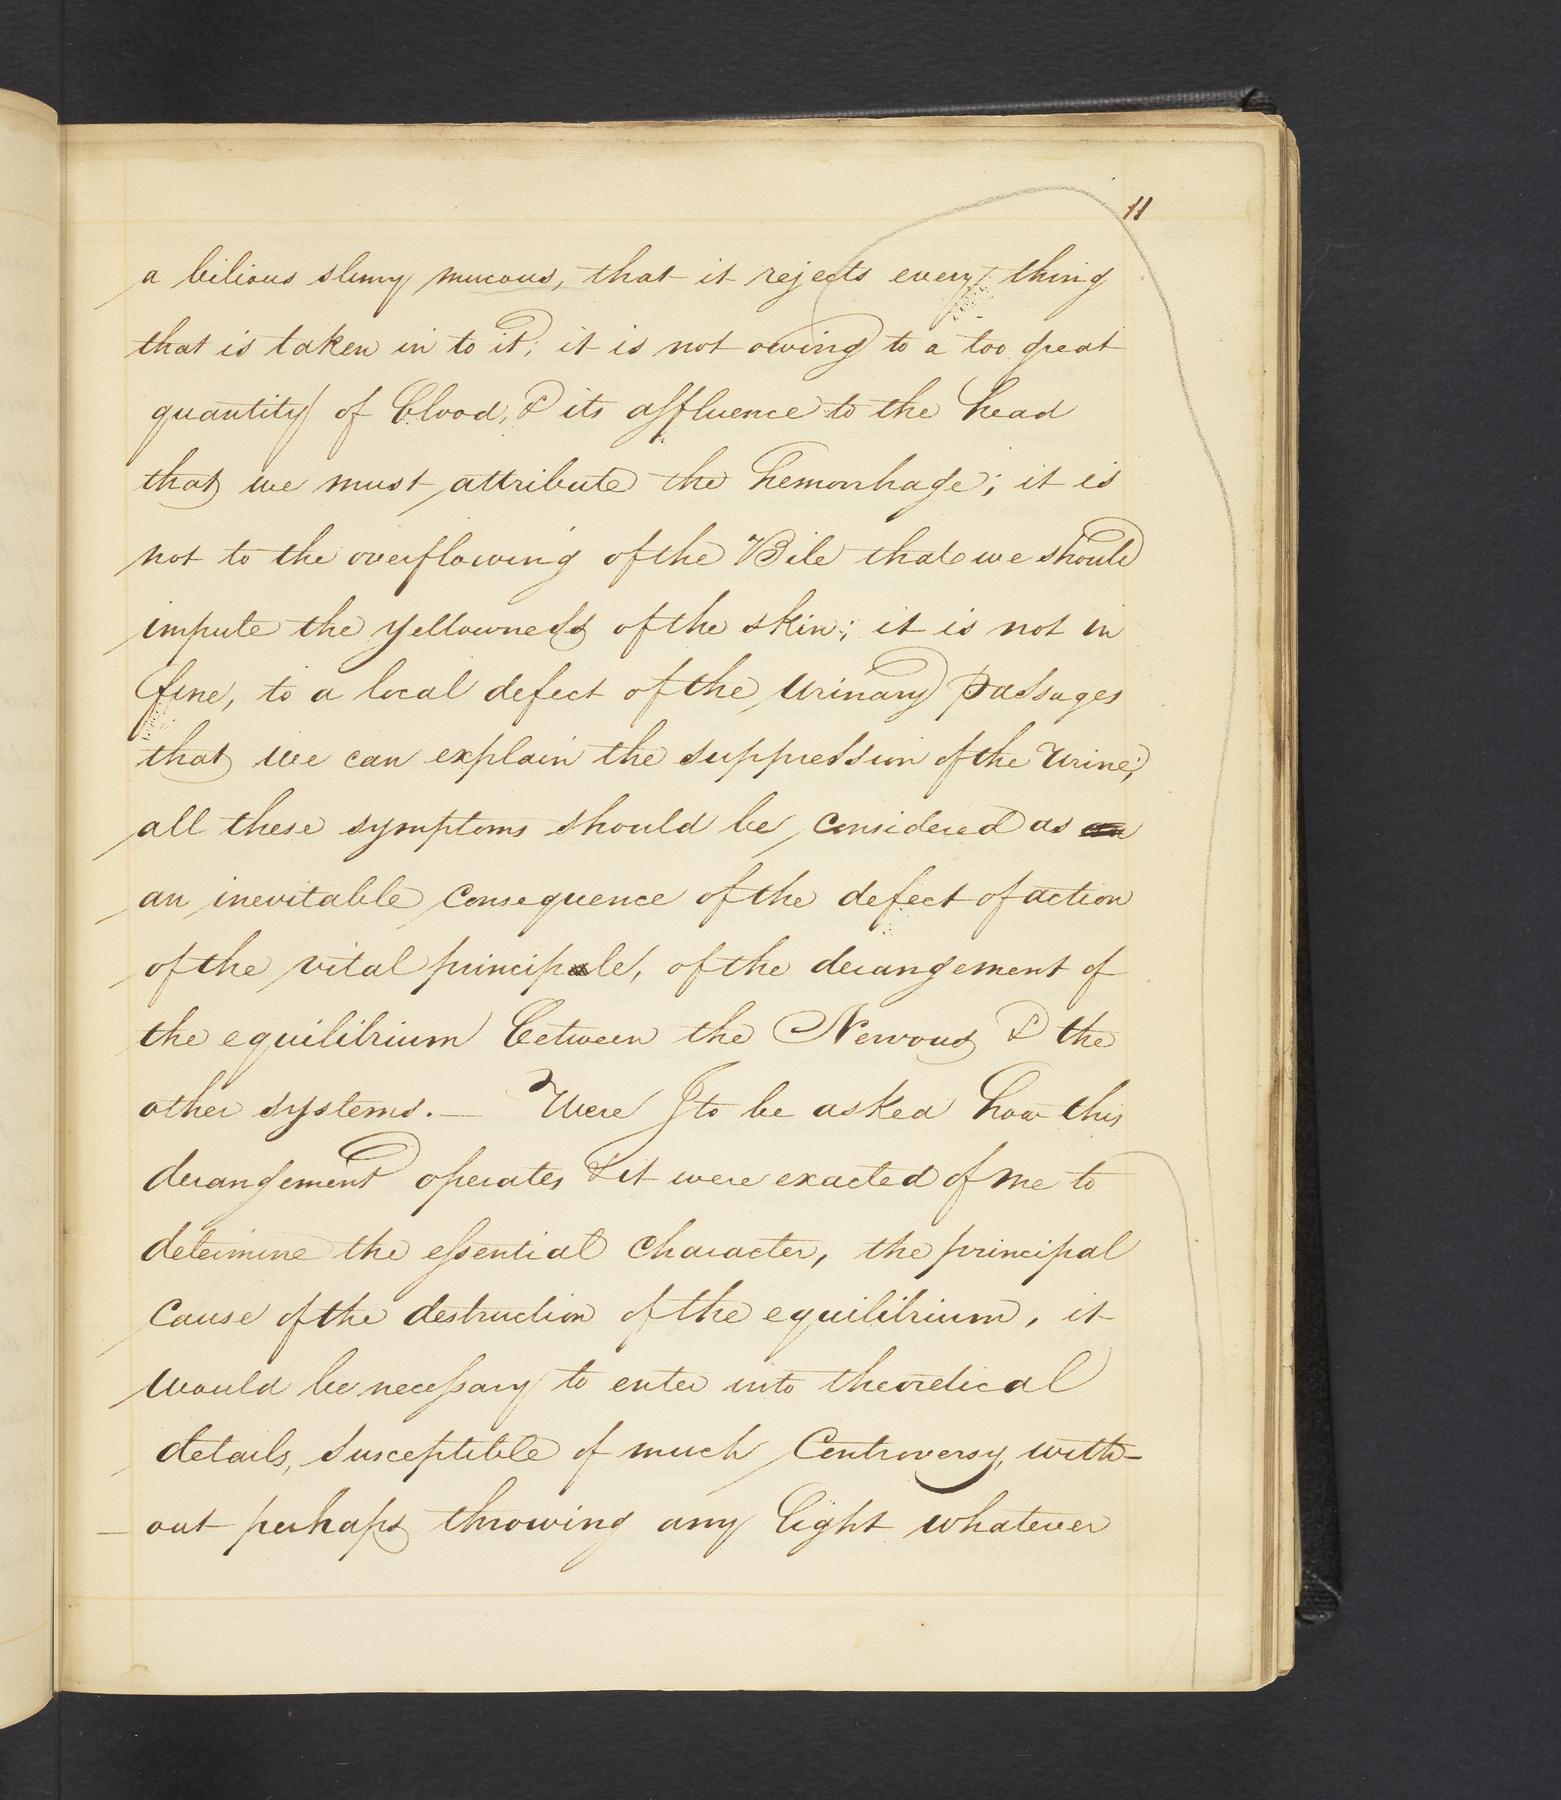 11
a bilious slimy mucous, that it rejects every thing
that is taken in to it; it is not owing to a too great
quantity of blood, & its affluence to the head
that we must attribute the hemorrhage; it is
not to the overflowing of the Bile that we should
impute the yellowness of the skin; it is not in
fine, to a local defect of the urinary passages
that we can explain the suppression of the Urine;
all these symptoms should be considered as an
an inevitable consequence of the defect of action
of the vital principle, of the derangement of
the equilibrium between the Nervous & the
other systems. — Were I to be asked how this
derangement operates & it were exacted of me to
determine the essential character, the principal
cause of the destruction of the equilibrium, it
would be necessary to enter into theoretical
details, susceptible of much Controversy, with-
- out perhaps throwing any light whatever